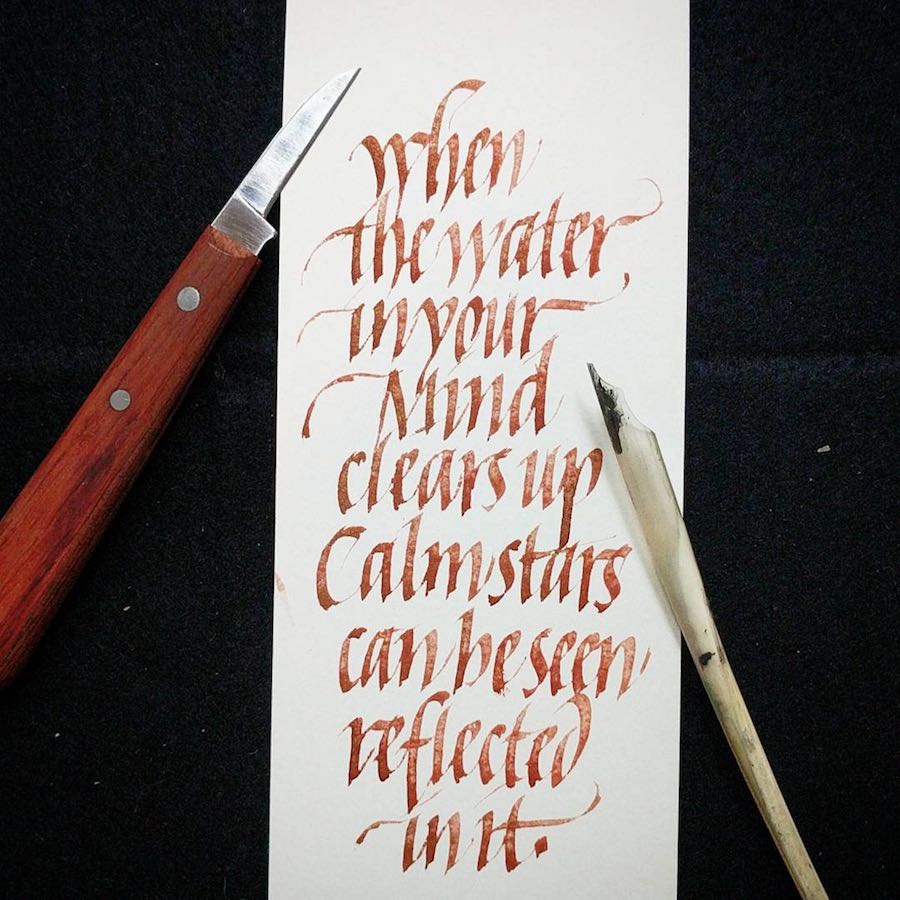 when
the water,
in your
Mind
clears up
Calm stars
can be seen,
reflected
in it.